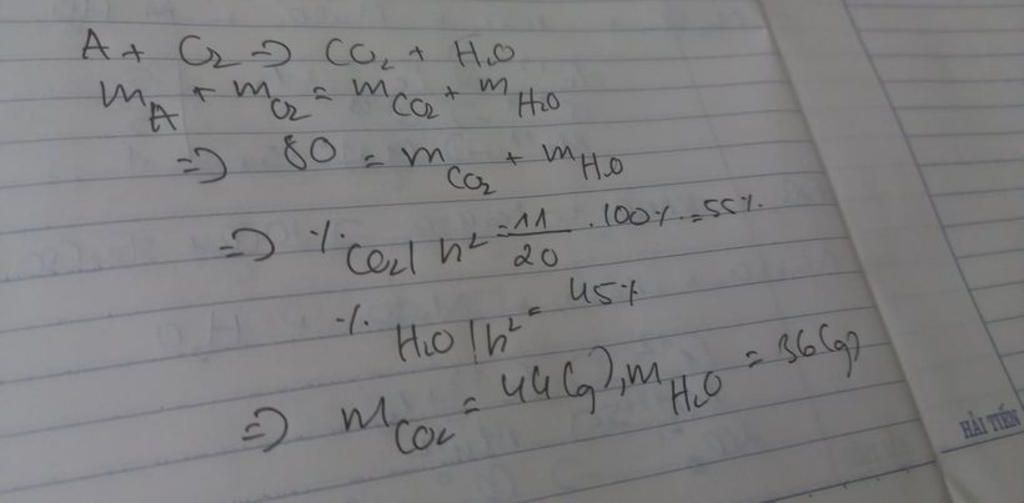 A + O₂ => CO₂ + H₂O
m_A + m_O₂ = m_CO₂ + m_H₂O
=> 80 = m_CO₂ + m_H₂O
=> %CO₂/h² = 11/20 . 100% = 55%.
% H₂O/h² = 45%
=> m_CO₂ = 44(g), m_H₂O = 36(g)
HẢI TIẾN